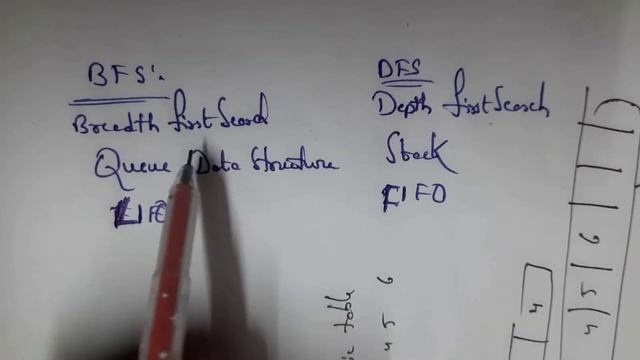 BFS:
Breadth first Search
Queue Data Structure
DFS
Depth first Search
Stack
table
4 5 6
4
4 5 6